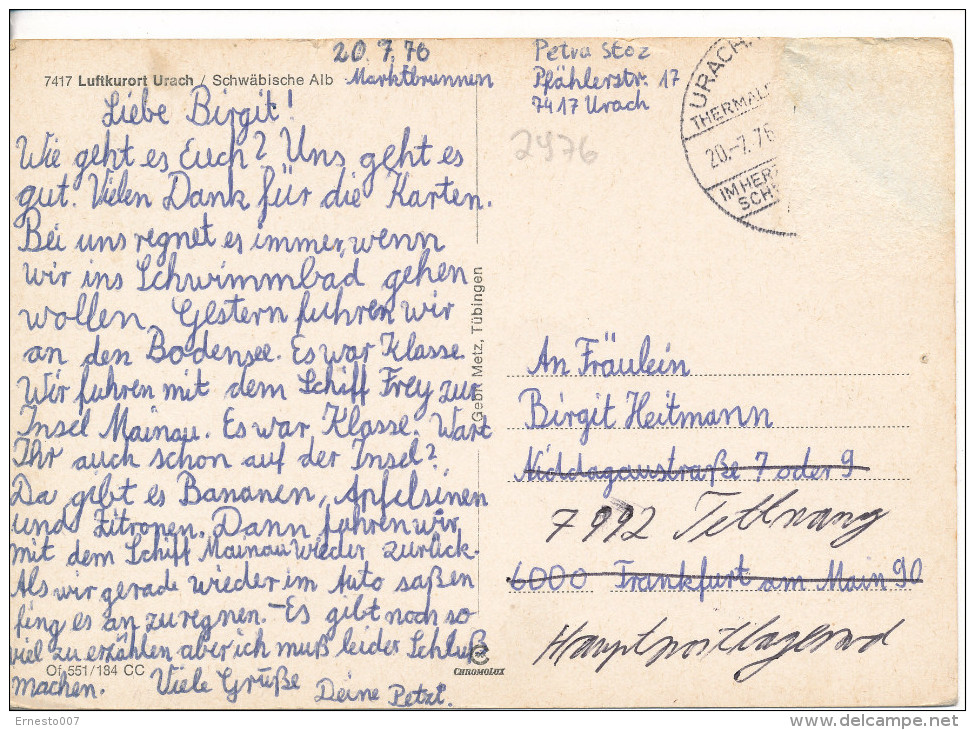 20.7.76
7417 Luftkurort Urach / Schwäbische Alb
Marktbrunnen
Liebe Birgit!
Wie geht es Euch? Uns geht es
gut. Vielen Dank für die Karten.
Bei uns regnet es immer, wenn
wir ins Schwimmbad gehen
wollen. Gestern fuhren wir
an den Bodensee. Es war Klasse.
Wir fuhren mit dem Schiff Frey zur
Insel Mainau. Es war Klasse. Wart
Ihr auch schon auf der Insel?
Da gibt es Bananen, Apfelsinen
und Zitronen. Dann fuhren wir
mit dem Schiff Mainau wieder zurück.
Als wir gerade wieder im Auto saßen
fing es an zu regnen. - Es gibt noch so
viel zu erzählen aber ich muß leider Schluß
machen. Viele Grüße
Deine Petzi.
Of 551/184 CC
CHROMOLUX
Gebr. Metz, Tübingen
Petra Stoz
Pfählerstr. 17
7417 Urach
2976
URACH
THERMAL
20.-7.76
IM HER
SCH
An Fräulein
Birgit Heitmann
Niddagaustraße 7 oder 9
7992 Tettnang
6000 Frankfurt am Main 90
Hauptpostlagernd
Ernesto007
delcampe.net